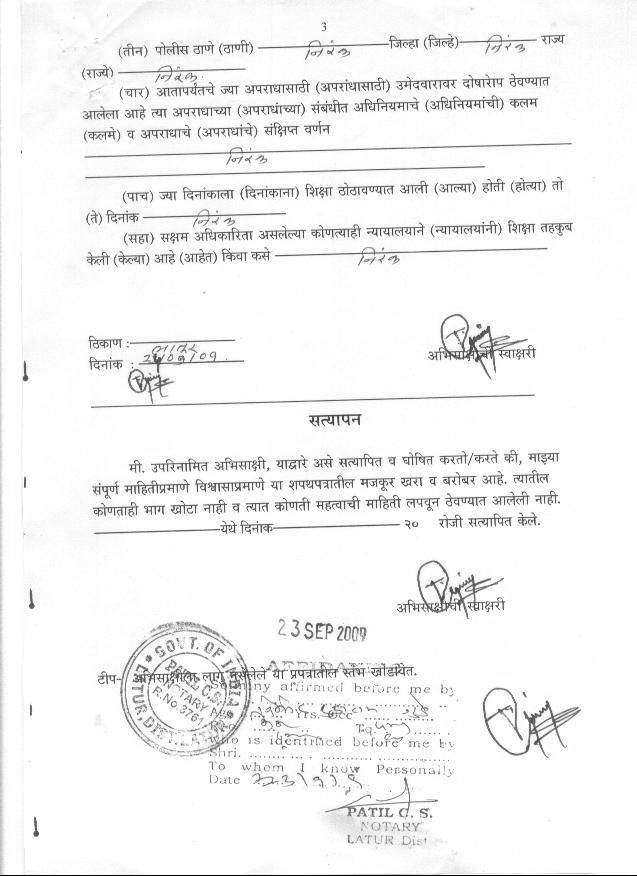 3
(तीन) पोलीस ठाणे (ठाणी) निरंक जिल्हा (जिल्हे) निरंक राज्य
(राज्ये) निरंक
(चार) आतापर्यतचे ज्या अपराधासाठी (अपराधांसाठी) उमेदवारावर दोषारोप ठेवण्यात
आलेला आहे त्या अपराधाच्या (अपराधांच्या) संबंधीत अधिनियमाचे (अधिनियमांची) कलम
(कलमे) व अपराधाचे (अपराधांचे) संक्षिप्त वर्णन
निरंक
(पाच) ज्या दिनांकाला (दिनांकाना) शिक्षा ठोठावण्यात आली (आल्या) होती (होत्या) तो
(ते) दिनांक निरंक
(सहा) सक्षम अधिकारिता असलेल्या कोणत्याही न्यायालयाने (न्यायालयांनी) शिक्षा तहकुब
केली (केल्या) आहे (आहेत) किंवा कसे निरंक
ठिकाण : लातूर
दिनांक : /09/09
अभिसाक्षीची स्वाक्षरी
सत्यापन
मी. उपरिनामित अभिसाक्षी, याद्वारे असे सत्यापित व घोषित करतो/करते की, माझ्या
संपूर्ण माहितीप्रमाणे विश्वासाप्रमाणे या शपथपत्रातील मजकूर खरा व बरोबर आहे. त्यातील
कोणताही भाग खोटा नाही व त्यात कोणती महत्वाची माहिती लपवून ठेवण्यात आलेली नाही.
येथे दिनांक २० रोजी सत्यापित केले.
अभिसाक्षीची स्वाक्षरी
23 SEP 2009
टीप- अभिसाक्षीला लागु नसलेले या प्रपत्रातील स्तंभ खोडावेत.
GOVT. OF INDIA
PATIL C.S.
NOTARY
R.No.3761
LATUR, DIST. LATUR
affirmed before me by
Yrs. Occ
Tq.
who is identified before me by
Shri.
To whom I know Personally
Date
PATIL C. S.
NOTARY
LATUR Dist